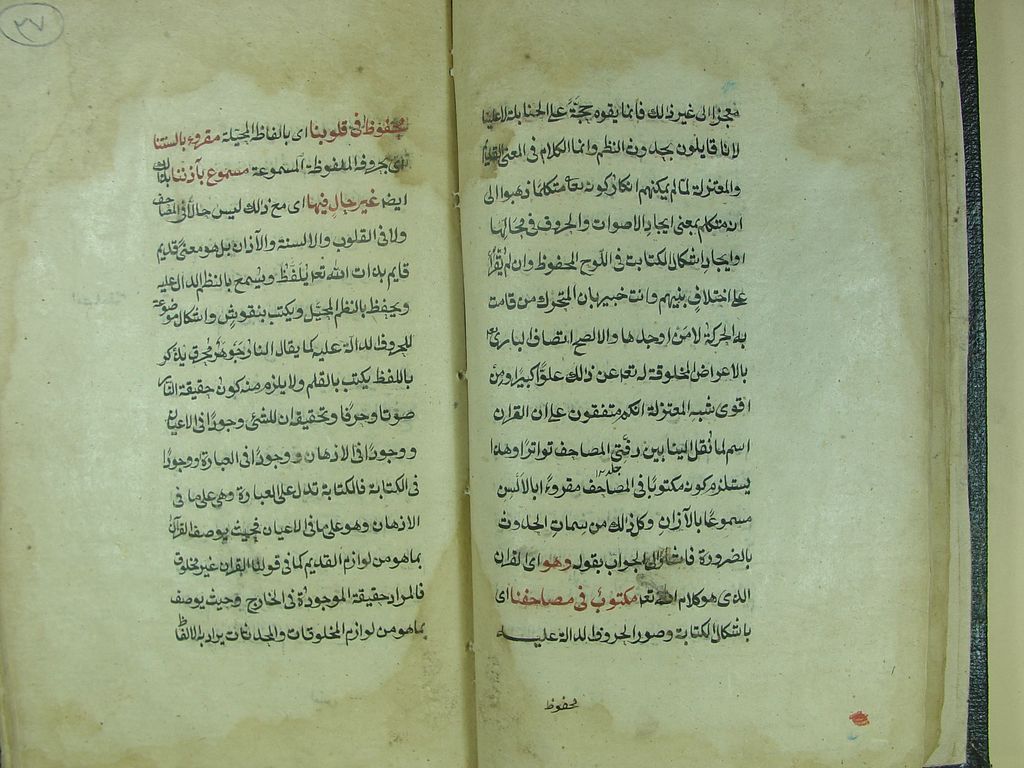 معجزا الى غير ذلك فانما يقوم حجة على الحنابلة لا علينا
لانا قايلون بحدوث النظم وانما الكلام فى المعنى القديم
والمعتزلة لما لم يمكنهم انكار كونه تعه متكلما ذهبوا الى
انه متكلم بمعنى ايجاد الاصوات والحروف فى محالها
او ايجاد اشكال الكتابت فى اللوح المحفوظ وان لم يقرأ
على اختلاف بينهم وانت خبير بان المتحرك من قامت
به الحركة لا من اوجدها والا لصح اتصاف البارى
بالاعراض المخلوقة له تعه عن ذلك علوا كبيرا ومن
اقوى شبه المعتزلة انكم متفقون على ان القران
اسم لما نقل الينا بين دفتى المصاحف تواترا وهذا
يستلزم كونه مكتوبا فى المصاحف مقروءا بالالسن
مسموعا بالآزان وكل ذلك من سمات الحدوث
بالضرورة فاشار الى الجواب بقوله وهو اى القران
الذى هو كلام الله تعه مكتوب فى مصاحفنا اى
باشكال الكتابة وصور الحروف الدالة عليه
محفوظ
٣٧
محفوظ فى قلوبنا اى بالفاظ المخيلة مقروء بالسنتنا
بحروفه الملفوظة المسموعة مسموع بآذننا بتلك
ايضا غير حال فيها اى مع ذلك ليس حالا فى المصاحف
ولا فى القلوب والالسنة والآذان بل هو معنى قديم
قايم بذات الله تعه يلفظ ويسمع بالنظم الدال عليه
ويحفظ بالنظم المخيل ويكتب بنقوش واشكال موضوعة
للحروف الدالة عليه كما يقال النار جوهر محرق يذكر
باللفظ يكتب بالقلم ولا يلزم منه كون حقيقة النار
صوتا وحرفا وتحقيقه ان للشئ وجودا فى الاعيان
ووجودا فى الاذهان ووجودا فى العبارة ووجودا
فى الكتابة فالكتابة تدل على العبارة وهى على ما فى
الاذهان وهو على ما فى الاعيان فحيث يوصف القرآن
بما هو من لوازم القديم كما فى قولنا القران غير مخلوق
فالمراد حقيقة الموجودة فى الخارج وحيث يوصف
بما هو من لوازم المخلوقات والمحدثات يراد به الالفاظ